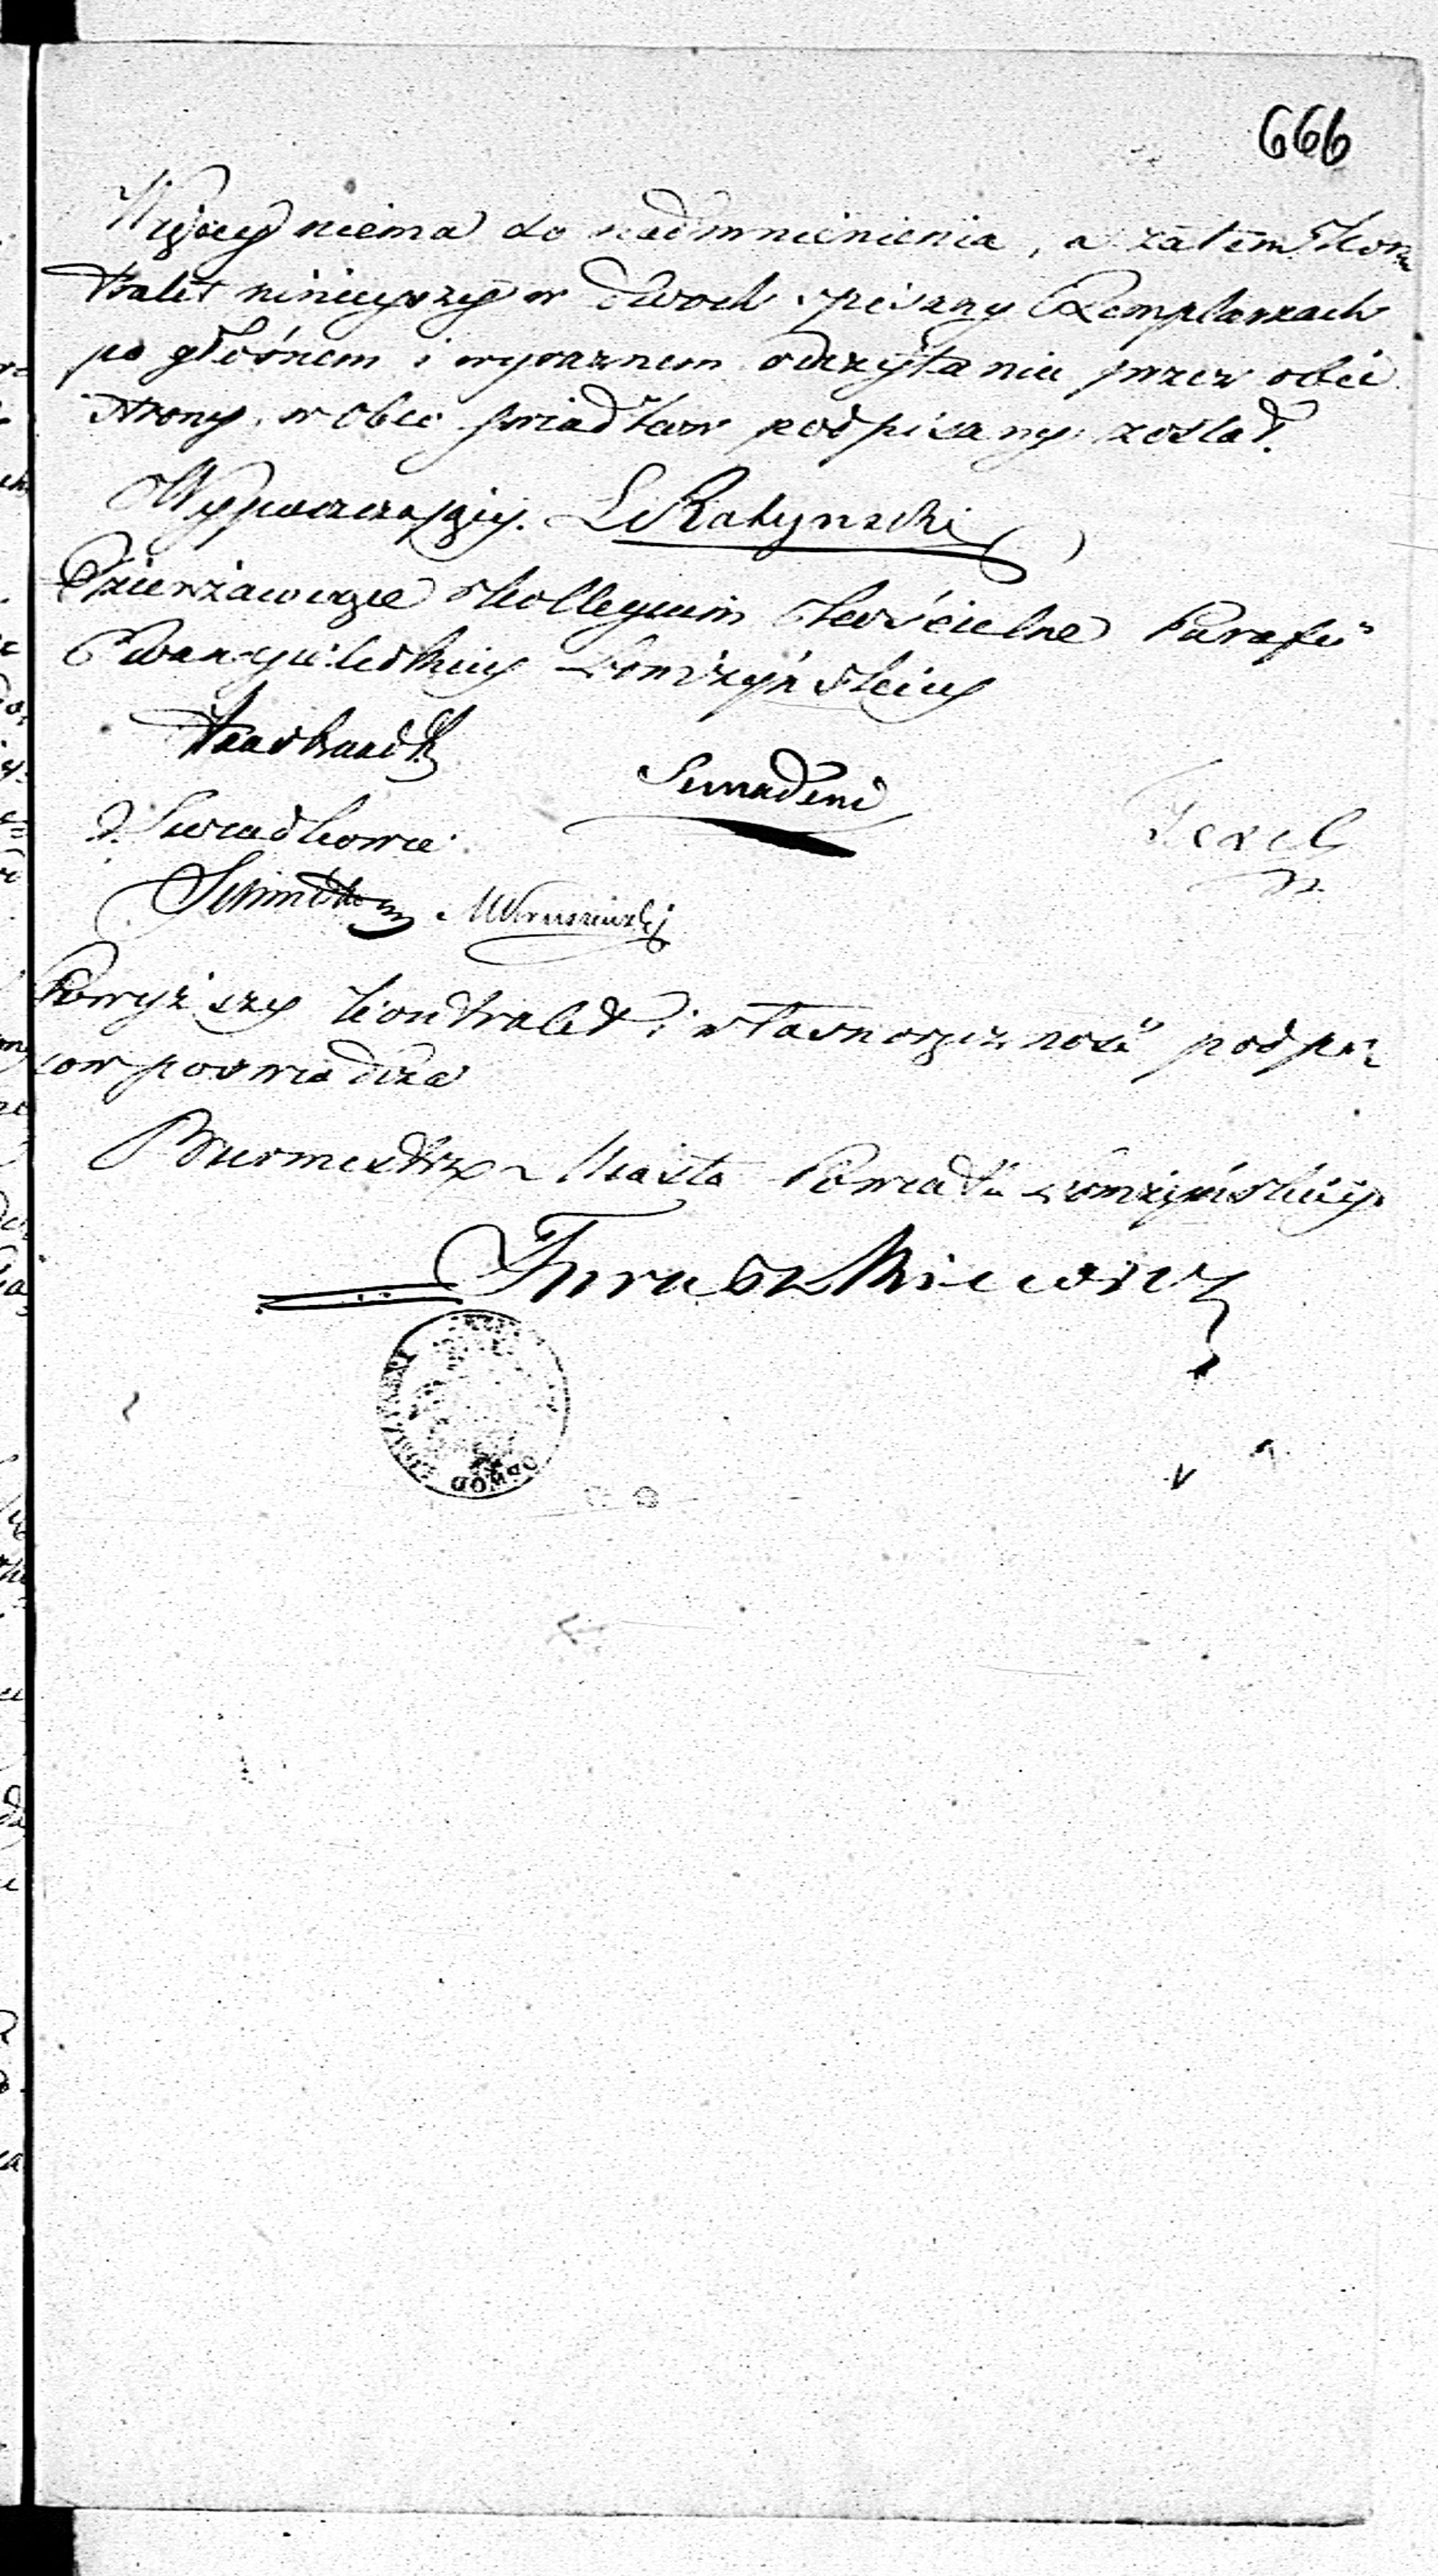 666
Więcey niema do nadmnienienia, a zatem Kon=
trakt ninieyszy w dwoch spisany Exemplarzach
po głośnem i wyraznem odczytaniu przez obie
strony, w obec swiadkow podpisany został.
Wypuszczaiący. Ratynski
Dzierżawiące Kollegium Kościelne Parafii
Ewangielickiey Łomżyńskiey
Semadeni
Swiadkowie
Powyższy kontrakt i własnoręczność podpi=
sow poswiadcza
Burmistrz Miasta Powiatu Łomżyńskiego
Juruszkiewicz